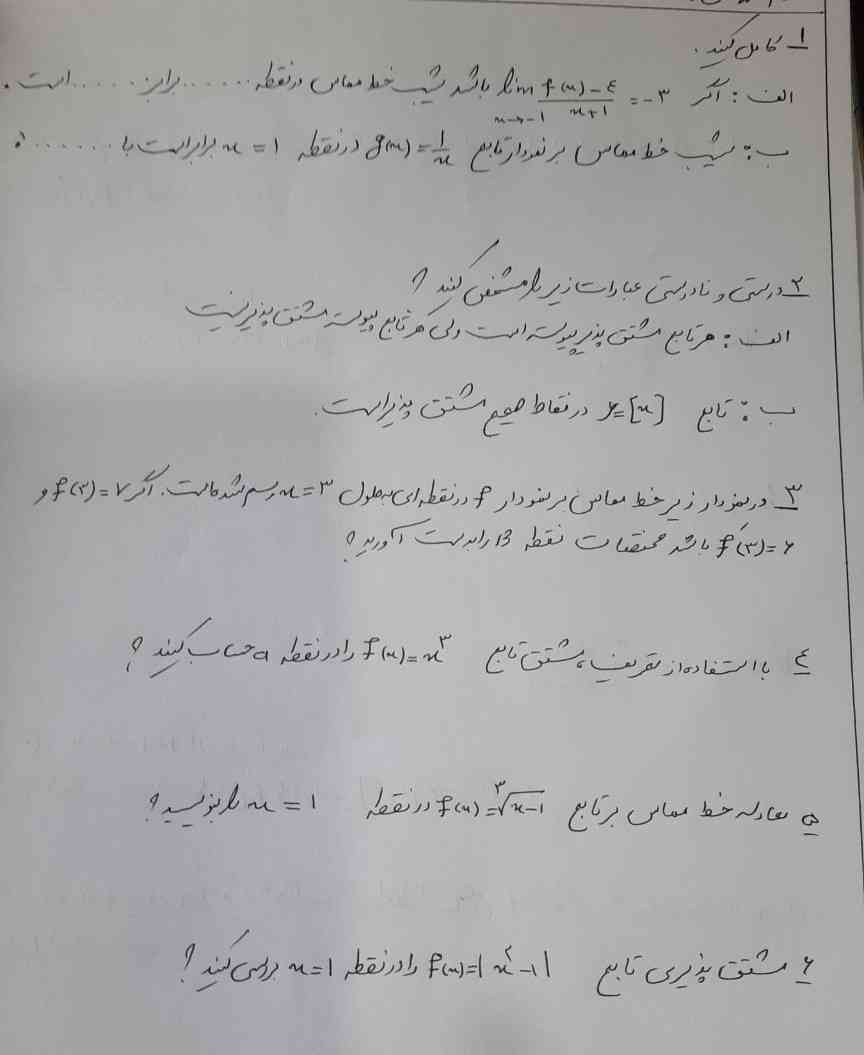 ۱ـ کامل کنید.
الف: اگر lim x→-۱ (f(x)-٤)/(x+۱) = -۳ باشد شیب خط مماس در نقطه ....... برابر ....... است.
ب: شیب خط مماس بر نمودار تابع f(x)=۱/x در نقطه x=۱ برابر است با .......؟
۲ـ درستی و نادرستی عبارات زیر را مشخص کنید؟
الف: هر تابع مشتق پذیر پیوسته است ولی هر تابع پیوسته مشتق پذیر نیست
ب: تابع y=[x] در نقاط صحیح مشتق پذیر است.
۳ـ در نمودار زیر خط مماس بر نمودار f در نقطه ای به طول x=۳ رسم شده است. اگر f(۳)=۷ و
f′(۳)=۶ باشد مختصات نقطه B را بدست آورید؟
٤ـ با استفاده از تعریف، مشتق تابع f(x)=x³ را در نقطه a حساب کنید؟
۵ـ معادله خط مماس بر تابع f(x)=∛(x-۱) در نقطه x=۱ را بنویسید؟
۶ـ مشتق پذیری تابع f(x)=|x²-۱| را در نقطه x=۱ بررسی کنید؟